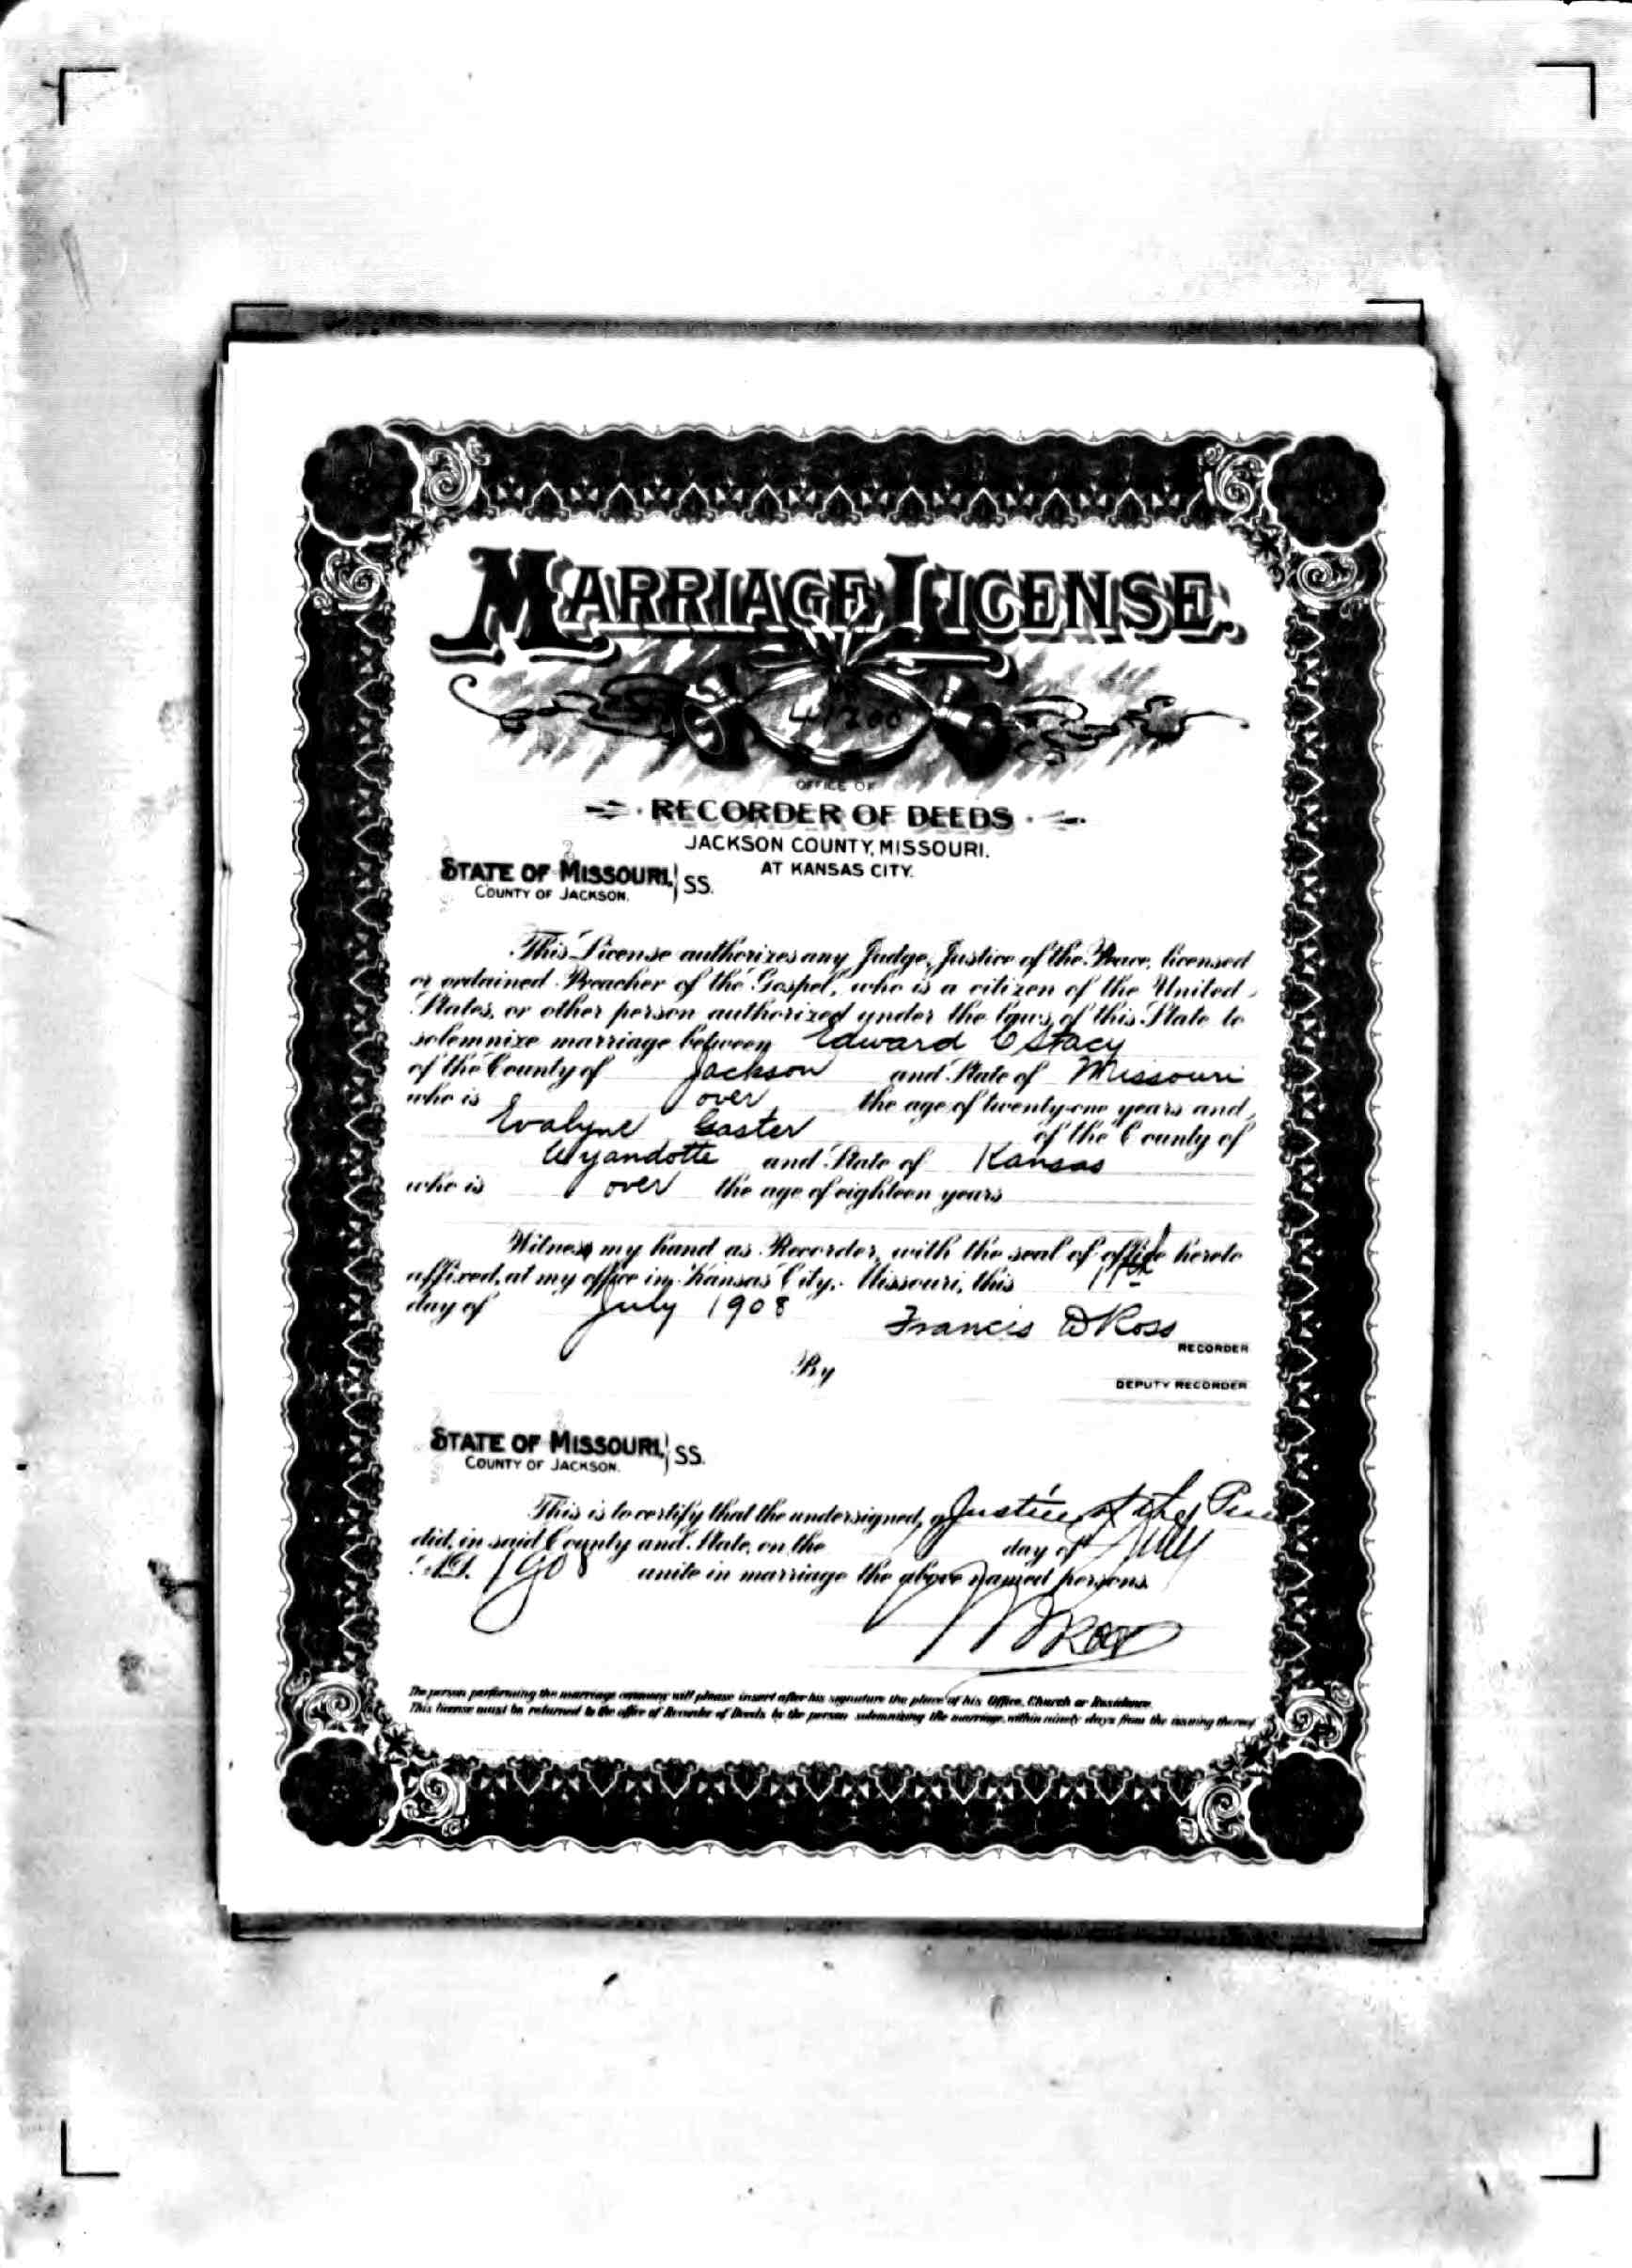 MARRIAGE LICENSE.
41200
OFFICE OF
RECORDER OF DEEDS
JACKSON COUNTY, MISSOURI.
AT KANSAS CITY.
STATE OF MISSOURI, SS.
COUNTY OF JACKSON.
This License authorizes any Judge, Justice of the Peace, licensed
or ordained Preacher of the Gospel, who is a citizen of the United
States, or other person authorized under the laws of this State to
solemnize marriage between Edward C Stacy
of the County of Jackson and State of Missouri
who is over the age of twenty-one years and
Evalyne Easter of the County of
Wyandotte and State of Kansas
who is over the age of eighteen years
Witness my hand as Recorder, with the seal of office hereto
affixed, at my office in Kansas City, Missouri, this
day of July 1908 Francis D Ross
RECORDER
By
DEPUTY RECORDER
STATE OF MISSOURI, SS.
COUNTY OF JACKSON.
This is to certify that the undersigned, a Justice of the
did, in said County and State, on the day of July
A.D. 1908 unite in marriage the above named persons.
The person performing the marriage ceremony will please insert after his signature the place of his Office, Church or Residence.
This license must be returned to the office of Recorder of Deeds by the person solemnizing the marriage, within ninety days from the issuing thereof